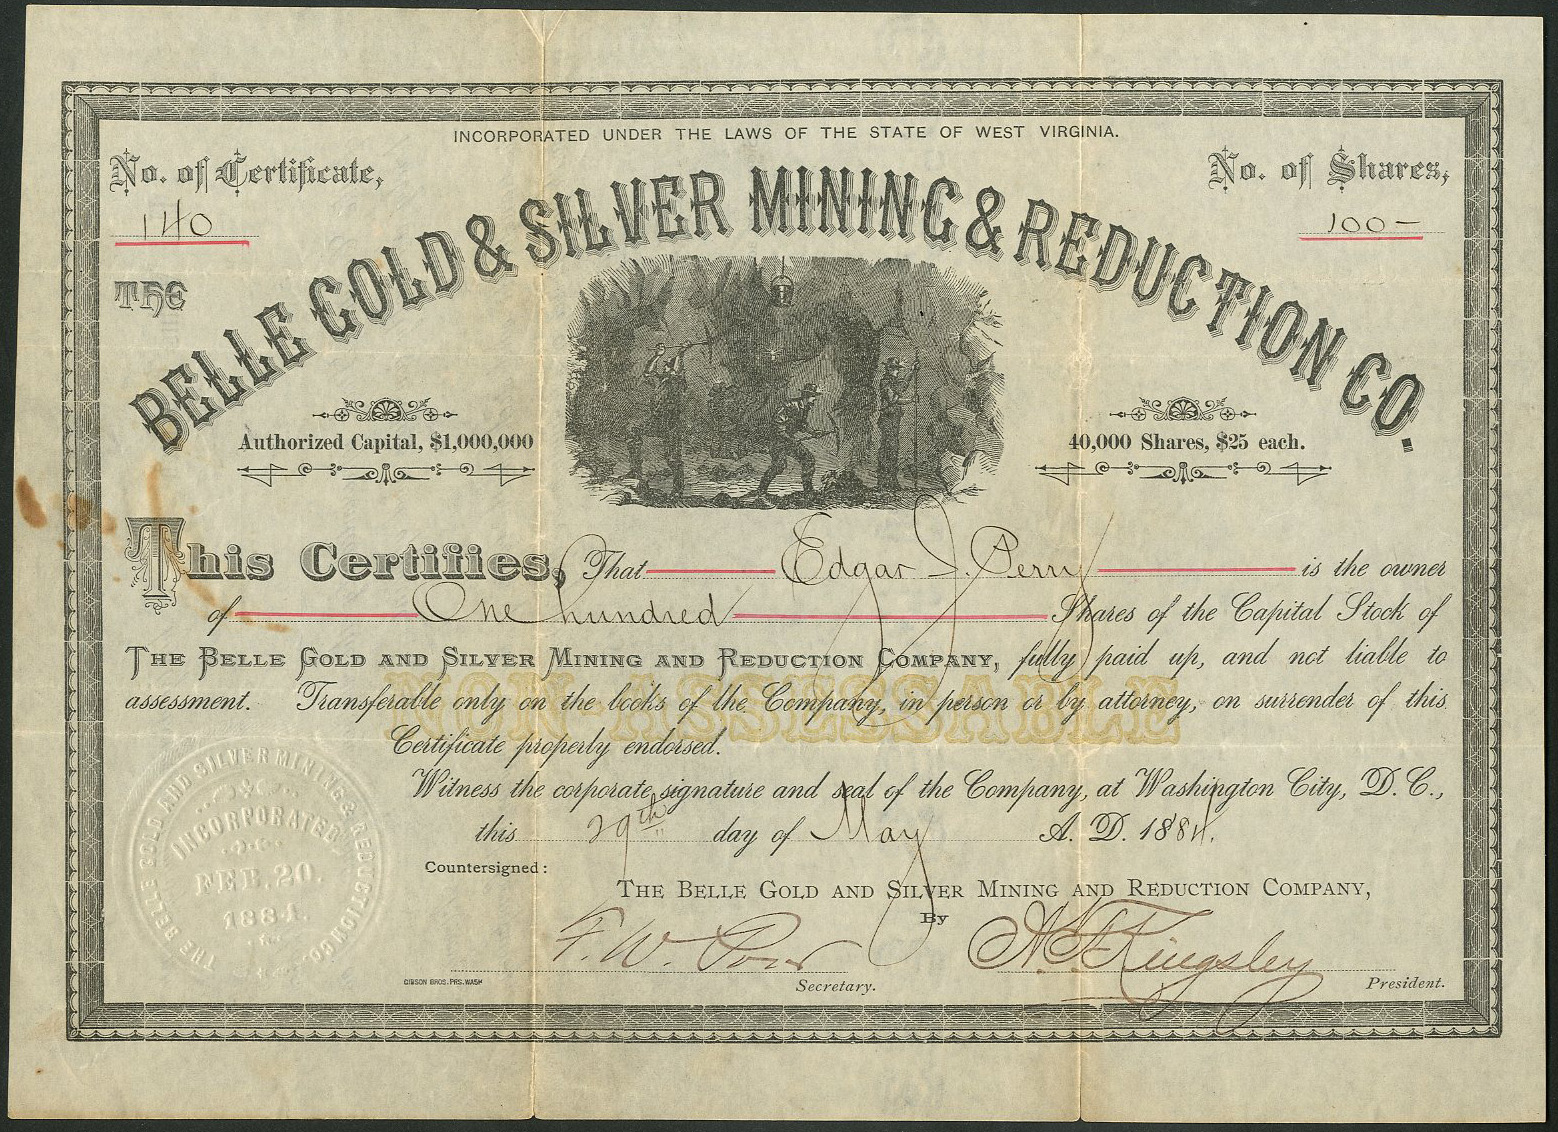 INCORPORATED UNDER THE LAWS OF THE STATE OF WEST VIRGINIA.
No. of Certificate,
140
No. of Shares,
100-
THE
BELLE GOLD & SILVER MINING & REDUCTION CO.
Authorized Capital, $1,000,000
40,000 Shares, $25 each.
This Certifies, That Edgar J. Perry is the owner
of One hundred Shares of the Capital Stock of
THE BELLE GOLD AND SILVER MINING AND REDUCTION COMPANY, fully paid up, and not liable to
assessment. Transferable only on the books of the Company, in person or by attorney, on surrender of this
NON-ASSESSABLE
Certificate properly endorsed.
Witness the corporate signature and seal of the Company, at Washington City, D. C.,
this 29th day of May A. D. 1884.
Countersigned:
THE BELLE GOLD AND SILVER MINING AND REDUCTION COMPANY,
By
F. W. A. F. Kingsley
Secretary.
President.
GIBSON BROS. PRS. WASH
THE BELLE GOLD AND SILVER MINING & REDUCTION CO.
INCORPORATED
FEB. 20.
1884.